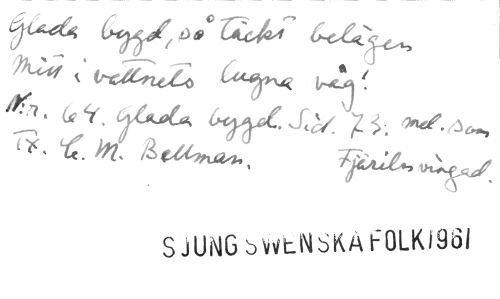 Glada bygd, så täckt belägen
Mitt i vattnets lugna våg!
N:r. 64. Glada bygd. Sid. 73. mel. som
Tx. C. M. Bellman. Fjäriln vingad.
SJUNG SWENSKA FOLK 1961